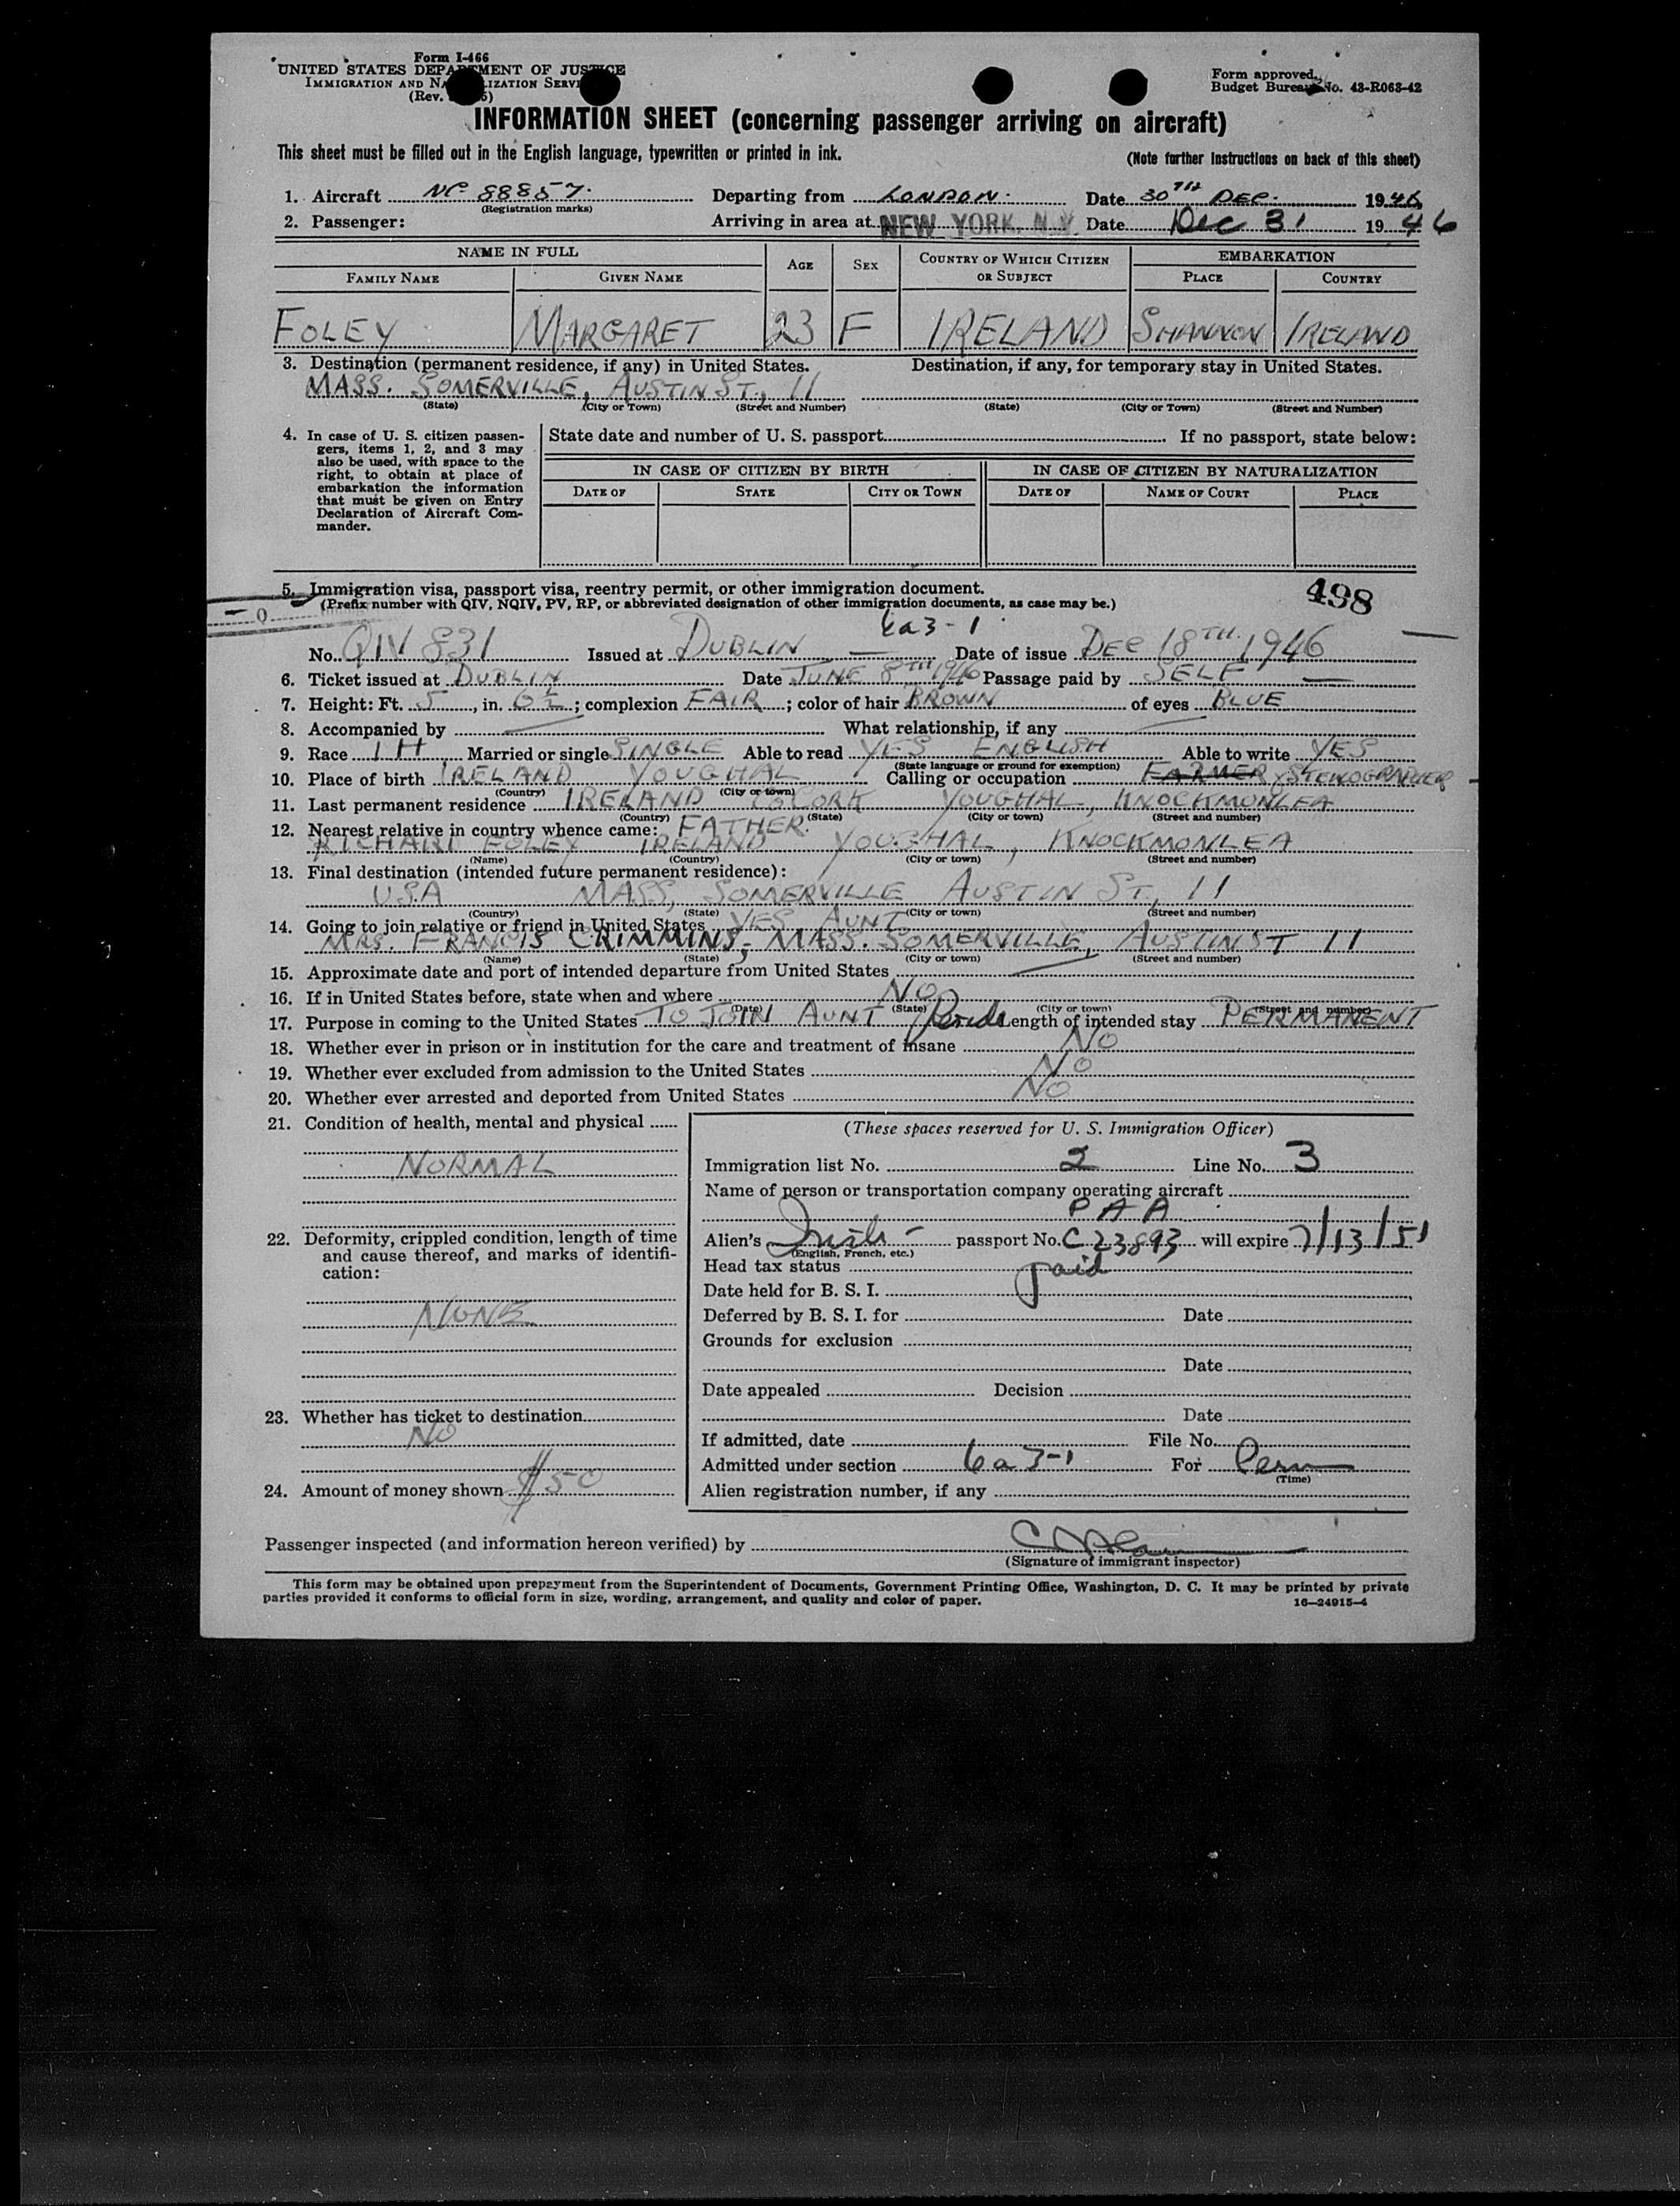 Form I-466
UNITED STATES DEPARTMENT OF JUSTICE
IMMIGRATION AND NATURALIZATION SERVICE
(Rev.
Form approved.
Budget Bureau No. 43-R063-42
INFORMATION SHEET (concerning passenger arriving on aircraft)
This sheet must be filled out in the English language, typewritten or printed in ink.
(Note further instructions on back of this sheet)
1. Aircraft NC 88857. Departing from LONDON. Date 30TH DEC. 1946
(Registration marks)
2. Passenger: Arriving in area at NEW YORK, N.Y. Date Dec 31 1946
NAME IN FULL AGE SEX COUNTRY OF WHICH CITIZEN OR SUBJECT EMBARKATION
FAMILY NAME GIVEN NAME PLACE COUNTRY
FOLEY MARGARET 23 F IRELAND SHANNON IRELAND
3. Destination (permanent residence, if any) in United States. Destination, if any, for temporary stay in United States.
MASS. SOMERVILLE, AUSTIN ST., 11
(State) (City or Town) (Street and Number) (State) (City or Town) (Street and Number)
4. In case of U. S. citizen passen-
gers, items 1, 2, and 3 may
also be used, with space to the
right, to obtain at place of
embarkation the information
that must be given on Entry
Declaration of Aircraft Com-
mander.
State date and number of U. S. passport If no passport, state below:
IN CASE OF CITIZEN BY BIRTH IN CASE OF CITIZEN BY NATURALIZATION
DATE OF STATE CITY OR TOWN DATE OF NAME OF COURT PLACE
5. Immigration visa, passport visa, reentry permit, or other immigration document.
(Prefix number with QIV, NQIV, PV, RP, or abbreviated designation of other immigration documents, as case may be.)
498
- 0
6a3-1
No. QIV 831 Issued at DUBLIN Date of issue DEC 18TH 1946
6. Ticket issued at DUBLIN Date JUNE 8TH 1946 Passage paid by SELF
7. Height: Ft. 5, in. 6½; complexion FAIR; color of hair BROWN of eyes BLUE
8. Accompanied by What relationship, if any
9. Race IH, Married or single SINGLE Able to read YES ENGLISH Able to write YES
(State language or ground for exemption)
10. Place of birth IRELAND YOUGHAL Calling or occupation FARMER STENOGRAPHER
(Country) (City or town)
11. Last permanent residence IRELAND CO CORK YOUGHAL, KNOCKMONLEA
(Country) (State) (City or town) (Street and number)
12. Nearest relative in country whence came: FATHER.
RICHARD FOLEY IRELAND YOUGHAL, KNOCKMONLEA
(Name) (Country) (City or town) (Street and number)
13. Final destination (intended future permanent residence):
USA MASS, SOMERVILLE AUSTIN ST., 11
(Country) (State) (City or town) (Street and number)
14. Going to join relative or friend in United States YES AUNT
MRS. FRANCIS CRIMMINS, MASS. SOMERVILLE, AUSTIN ST 11
(Name) (State) (City or town) (Street and number)
15. Approximate date and port of intended departure from United States
16. If in United States before, state when and where NO
(Date) (State) (City or town) (Street and number)
17. Purpose in coming to the United States TO JOIN AUNT Length of intended stay PERMANENT
18. Whether ever in prison or in institution for the care and treatment of insane NO
19. Whether ever excluded from admission to the United States NO
20. Whether ever arrested and deported from United States NO
21. Condition of health, mental and physical
NORMAL
22. Deformity, crippled condition, length of time
and cause thereof, and marks of identifi-
cation:
NONE
23. Whether has ticket to destination
NO
24. Amount of money shown $50
(These spaces reserved for U. S. Immigration Officer)
Immigration list No. 2 Line No. 3
Name of person or transportation company operating aircraft
PAA
Alien's Irish passport No. C23893 will expire 7/13/51
(English, French, etc.)
Head tax status paid
Date held for B. S. I.
Deferred by B. S. I. for Date
Grounds for exclusion
Date
Date appealed Decision
Date
If admitted, date File No.
Admitted under section 6a3-1 For Perm
(Time)
Alien registration number, if any
Passenger inspected (and information hereon verified) by
(Signature of immigrant inspector)
This form may be obtained upon prepayment from the Superintendent of Documents, Government Printing Office, Washington, D. C. It may be printed by private
parties provided it conforms to official form in size, wording, arrangement, and quality and color of paper. 16—24915-4